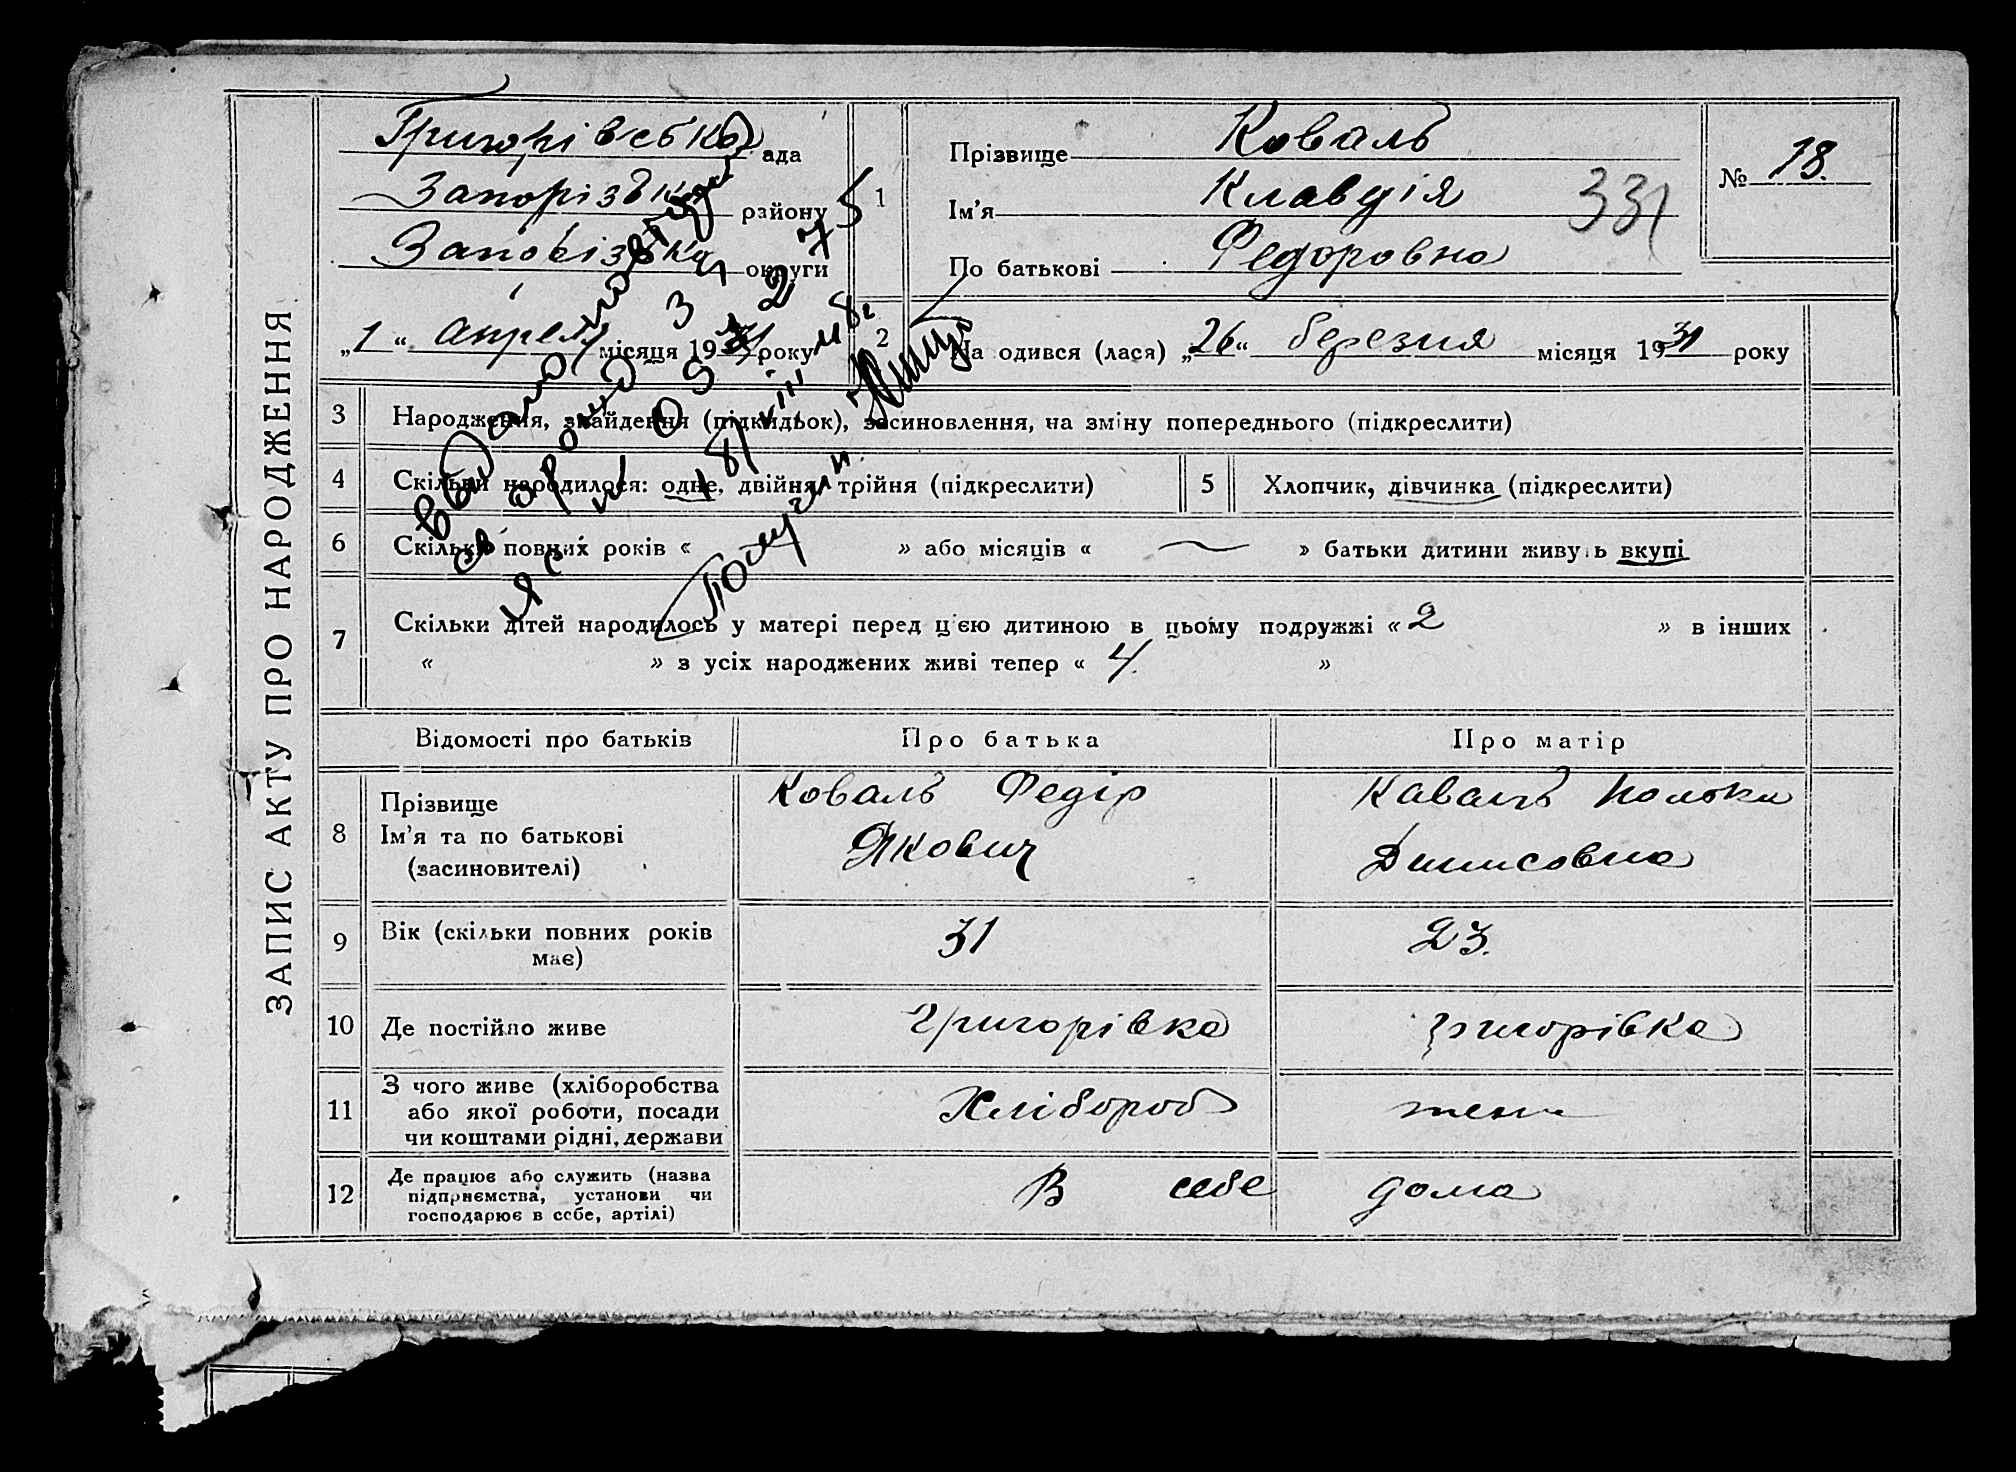 ЗАПИС АКТУ ПРО НАРОДЖЕННЯ
Григорівська ада
Запорізька району
Запорізька округи
„1“ апреля місяця 1931 року
1
Прізвище Коваль
Ім'я Клавдія
331
По батькові Федоровна
№ 18.
2
На одився (лася) „26“ березня місяця 1931 року
3 Народження, знайдення (підкидьок), засиновлення, на зміну попереднього (підкреслити)
4 Скільки народилося: одне, двійня, трійня (підкреслити)
5 Хлопчик, дівчинка (підкреслити)
6 Скільки повних років « » або місяців « » батьки дитини живуть вкупі
7 Скільки дітей народилось у матері перед цією дитиною в цьому подружжі «2 » в інших
« » з усіх народжених живі тепер « 4. »
Видано повт
ЯС № 0597275
18/VIII 48г
Получил
Відомості про батьків
Про батька
Про матір
8 Прізвище
Ім'я та по батькові
(засиновителі)
Коваль Федір
Якович
Каваль
Динисовна
9 Вік (скільки повних років
має)
31
23.
10 Де постійно живе
Григорівка
Григорівка
11 З чого живе (хліборобства
або якої роботи, посади
чи коштами рідні, держави
Хлібороб
12 Де працює або служить (назва
підприємства, установи чи
господарює в себе, артілі)
В себе дома